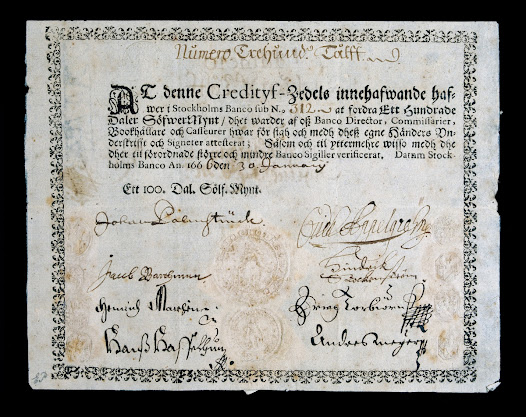 Numero Trehund. Tålff
AT denne Credityf-Zedels innehafwande haf-
wer i Stockholms Banco sub N.o 312 at fordra Ett Hundrade
Daler SölfwerMynt / dhet warder af oß Banco Director, Commissarier,
Bookhållare och Casseurer hwar för sigh och medh dheß egne Händers Vn-
derskrifft och Signeter attesterat; Såsom och til yttermehre wisso medh dhe
dher til förordnade större och mindre Banco Sigiller verificerat. Datum Stock-
holms Banco An. 166 6 den 30 January
Ett 100. Dal. Sölf. Mynt.
Johan Palmstruch
Jacob
Hinrik
Hanß
Andres Meyer